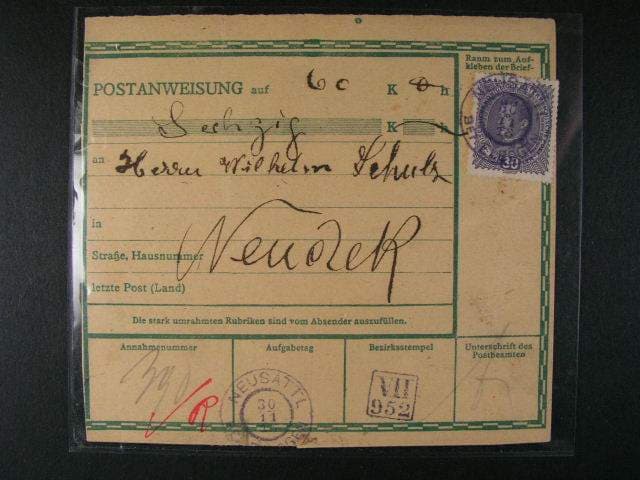 Raum zum Auf-
kleben der Brief-
POSTANWEISUNG auf 60 K 0 h
Sechzig K h
an Herrn Wilhelm Schulz
in Neudek
Straße, Hausnummer
letzte Post (Land)
Die stark umrahmten Rubriken sind vom Absender auszufüllen.
Annahmenummer Aufgabetag Bezirksstempel Unterschrift des
Postbeamten
390
NEUSATTL
30
11
VII
952
30